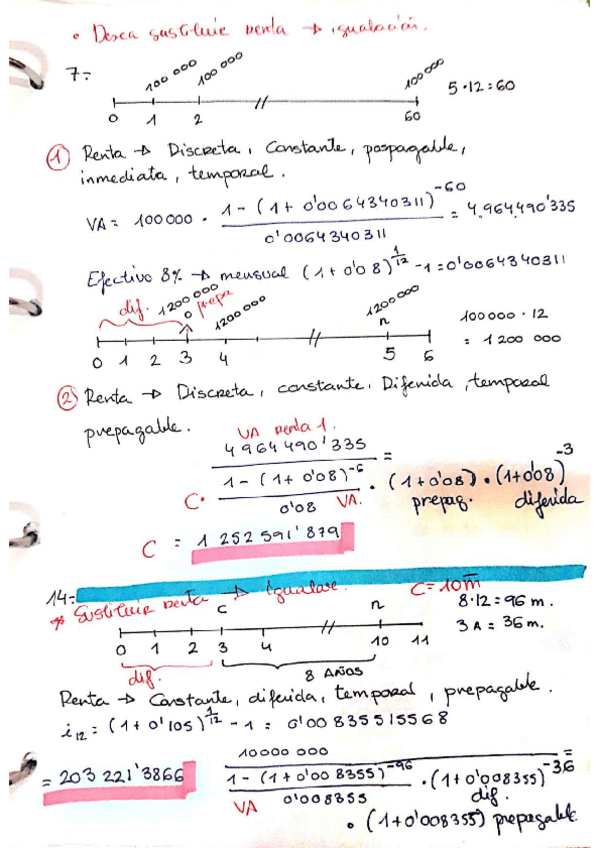 • Desea sustituir renta → igualación.
7=
100 000 100 000 100 000
5·12 = 60
0 1 2 // 60
① Renta → Discreta, Constante, pospagable,
inmediata, temporal.
VA = 100 000 · 1 - (1 + 0'0064340311)^-60 / 0'0064340311 = 4.964490'335
Efectivo 8% → mensual (1 + 0'08)^1/12 - 1 = 0'0064340311
dif. 1200 000 prepa 1200 000 1200 000
0 n
100 000 · 12
= 1 200 000
0 1 2 3 4 // 5 6
② Renta → Discreta, constante. Diferida, temporal
prepagable.
VA renta 1.
4 964 490'335 =
C· 1 - (1 + 0'08)^-6 / 0'08 VA. · (1 + 0'08) · (1 + 0'08)^-3
prepag. diferida
C = 1 252 591'879
14=
* Sustituir renta → Igualase. C = 10 m
8·12 = 96 m.
3 A = 36 m.
C n
0 1 2 3 4 // 10 11
dif. 8 AÑOS
Renta → Constante, diferida, temporal, prepagable.
i12 = (1 + 0'105)^1/12 - 1 = 0'00835515568
10000 000 =
= 203 221'3866
1 - (1 + 0'008355)^-96 / 0'008355 · (1 + 0'008355)^-36
VA dif.
· (1 + 0'008355) prepagable